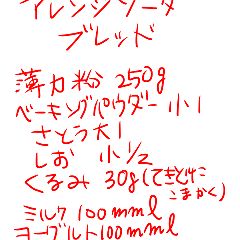 アイレンジソーダ
ブレッド
薄力粉 250g
ベーキングパウダー 小1
さとう大1
しお 小1/2
くるみ 30g(てきとうに
こまかく)
ミルク 100mml
ヨーグルト100mml